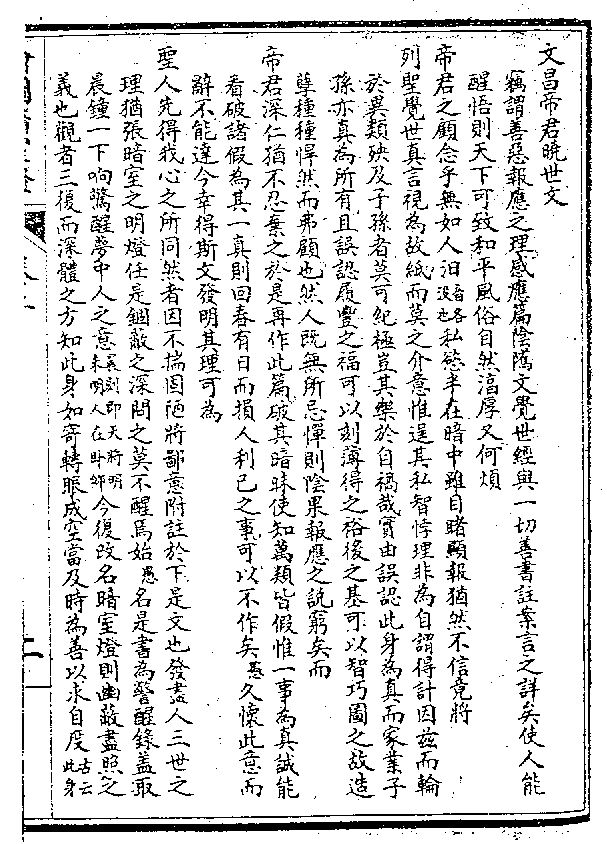 文昌帝君曉世文
竊謂善惡報應之理感應篇陰騭文覺世經與一切善書註案言之詳矣使人能
醒悟則天下可致和平風俗自然湻厚又何煩
帝君之顧念乎無如人汨音名沒也私慾半在暗中雖目睹顯報猶然不信竟將
列聖覺世真言視為故紙而莫之介意惟逞其私智悖理非為自謂得計因兹而輪
於異類殃及子孫者莫可紀極豈其樂於自禍哉實由誤認此身為真而家業子
孫亦真為所有且誤認履豐之福可以刻薄得之裕後之基可以智巧圖之故造
孽種種悍然而弗顧也然人既無所忌憚則陰果報應之說窮矣而
帝君深仁猶不忍棄之於是再作此篇破其暗昧使知萬類皆假惟一事為真誠能
看破諸假為其一真則回春有日而損人利己之事可以不作矣愚久懷此意而
辭不能達今幸得斯文發明其理可為
聖人先得我心之所同然者因不揣固陋將鄙意附註於下是文也發盡人三世之
理猶張暗室之明燈任是錮蔽之深閱之莫不醒焉始愚名是書為警醒錄蓋取
晨鐘一下响驚醒夢中人之意晨刻即天將明未明人在卧師今復改名暗室燈則幽蔽盡照之
義也觀者三復而深體之方知此身如寄轉眼成空當及時為善以求自度古云此身
二